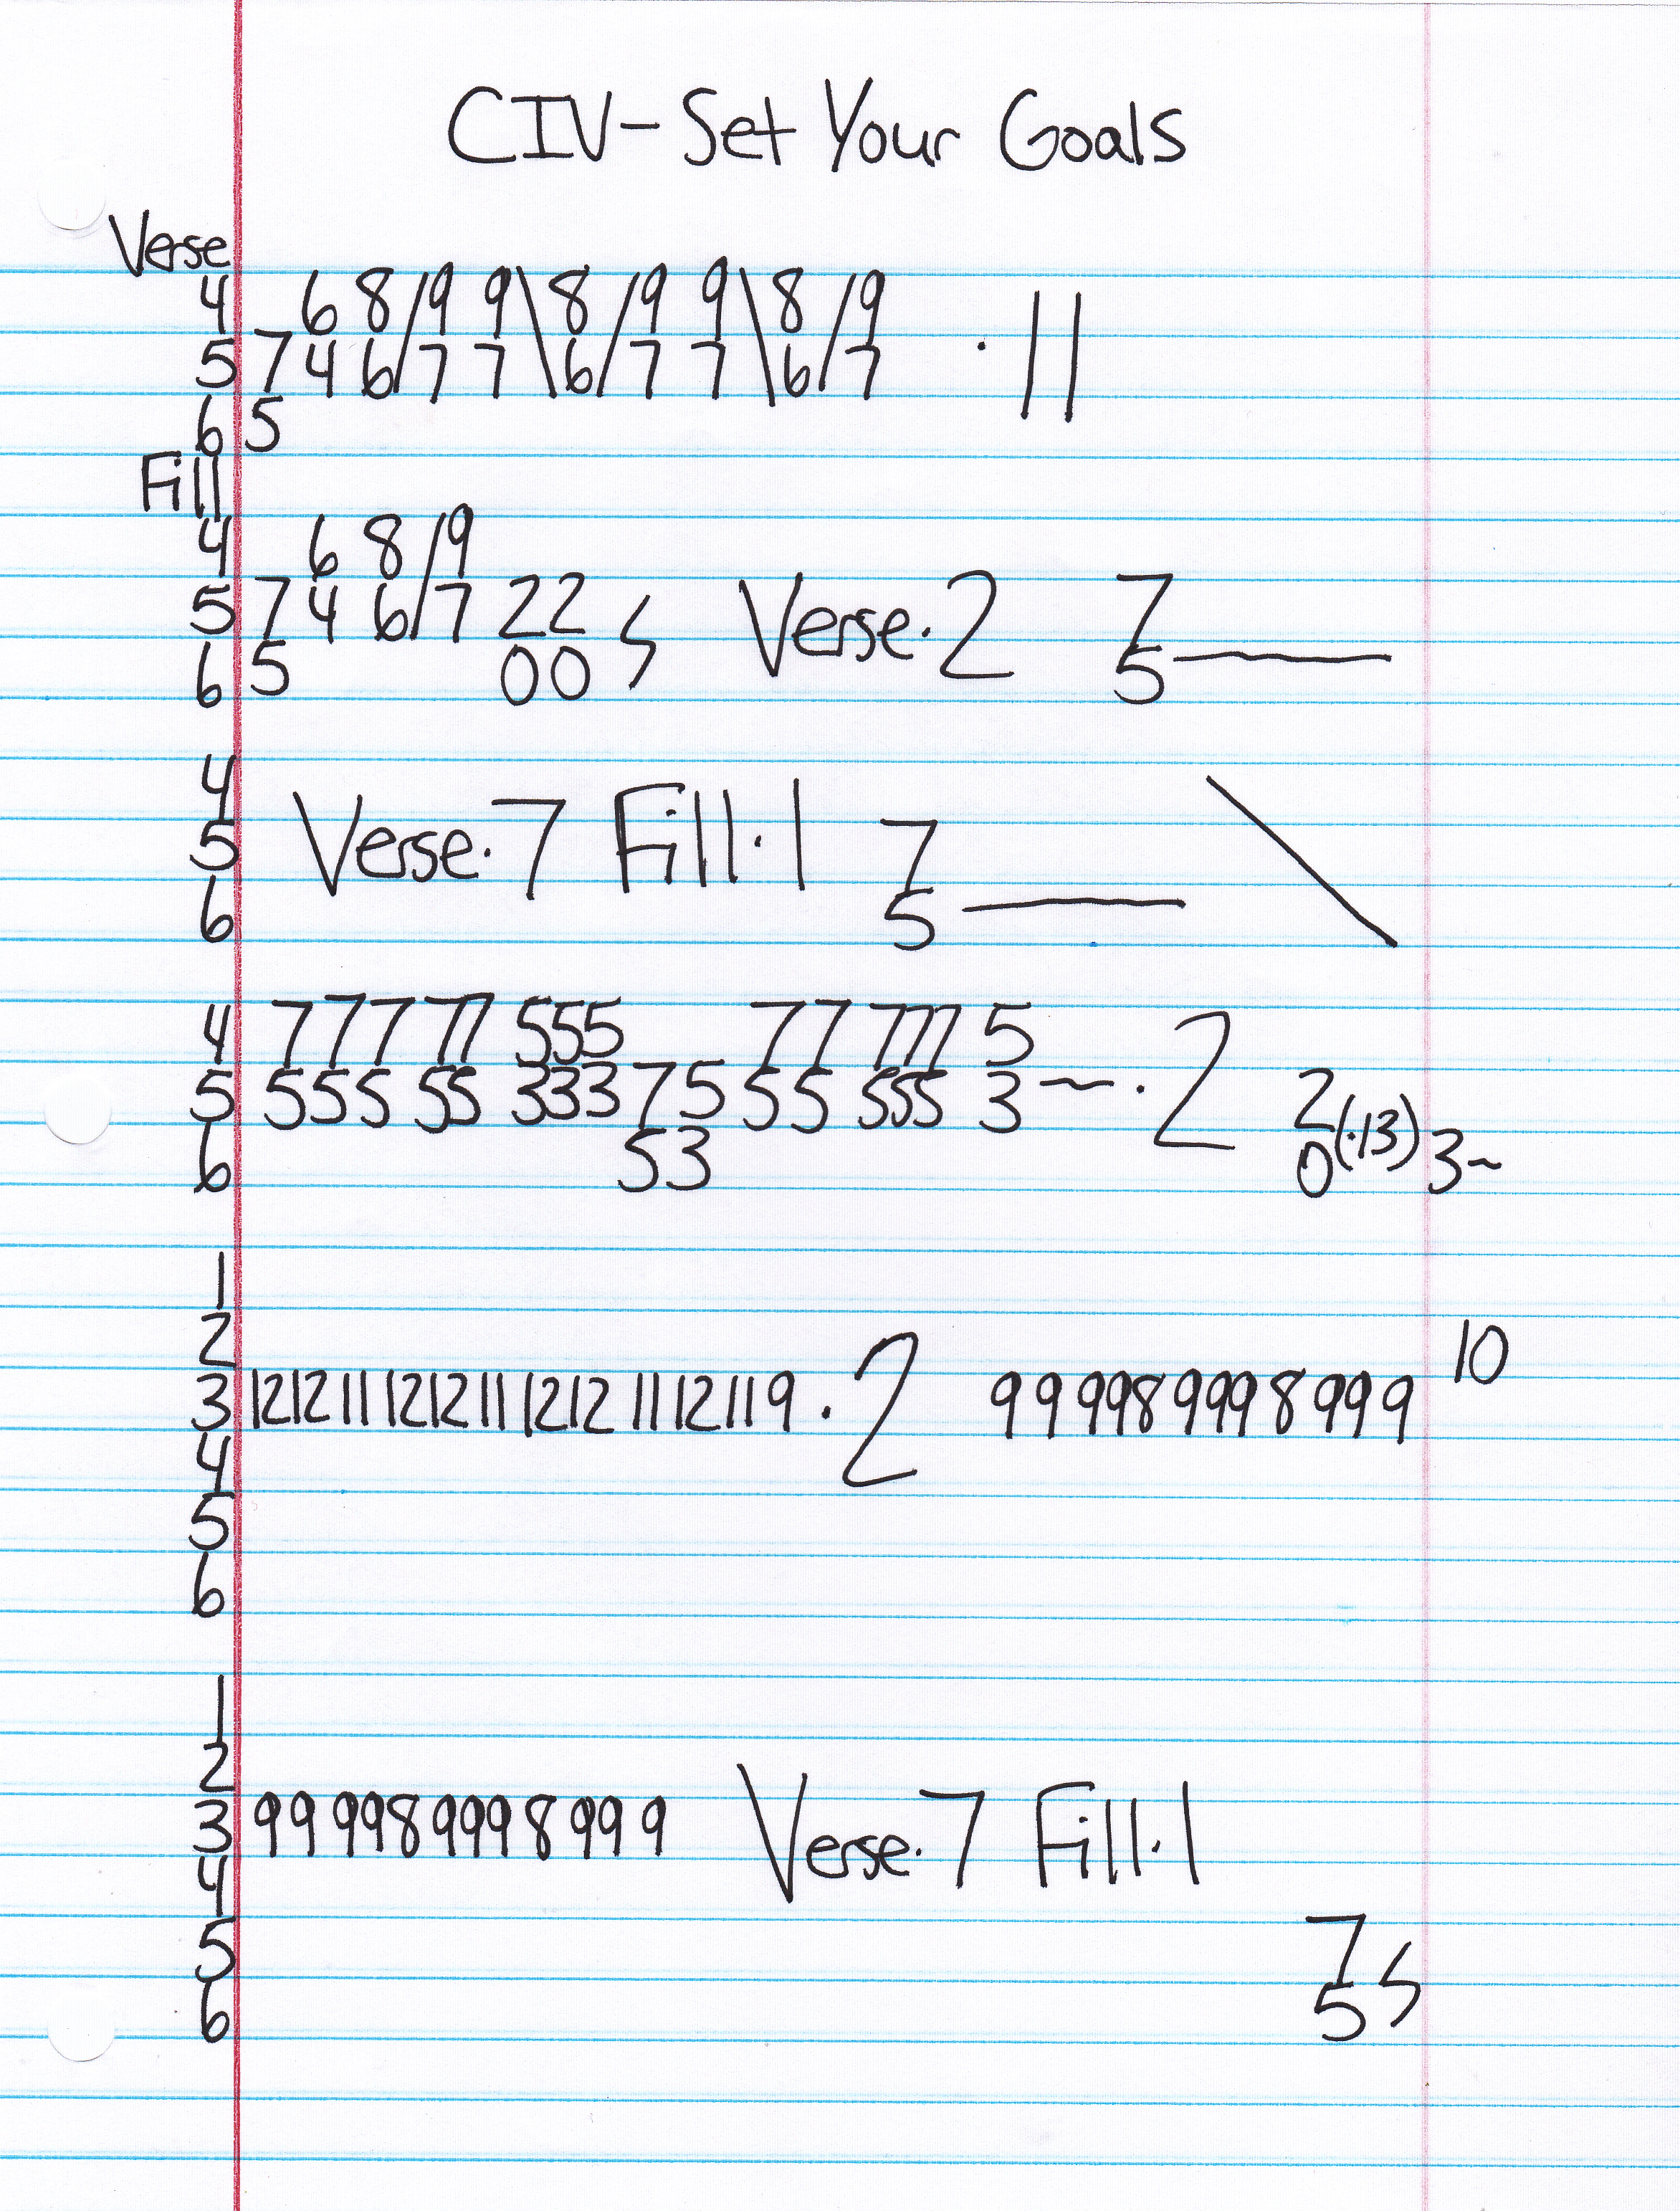 CIV-Set Your Goals
Verse
4 6 8/9 9\8/9 9\8/9
5 7 4 6/7 7\6/7 7\6/7 · 11
6 5
Fill
4 6 8/9
5 7 4 6/7 22 Verse·2 7
6 5 00 5
4
5 Verse·7 Fill·1 7
6 5
4 7 7 7 77 555 77 777 5
5 5 5 5 55 333 7 5 5 5 555 3~ ·2 2
6 5 3 0 (·13) 3~
1
2 10
3 12 12 11 12 12 11 12 12 11 12 11 9 ·2 99 9998 9998 999
4
5
6
1
2
3 99 9998 9998 999 Verse·7 Fill·1
4
5 7
6 5